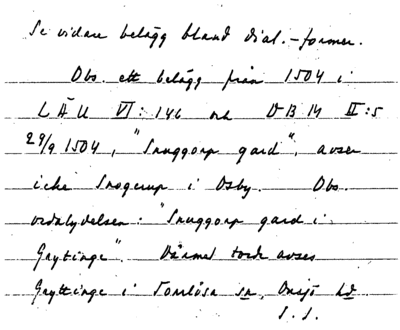 Se vidare belägg bland dial.-former.
Obs. ett belägg från 1504 i
LÄU VI: 146 och DB 14 II:5
29/9 1504, "Snuggorp gard", avser
icke Snogerup i Osby. Obs.
ordalydelsen: "Snuggorp gard i
Grytinge". Därmed torde avses
Gryttinge i Torrlösa sn, Onsjö hd